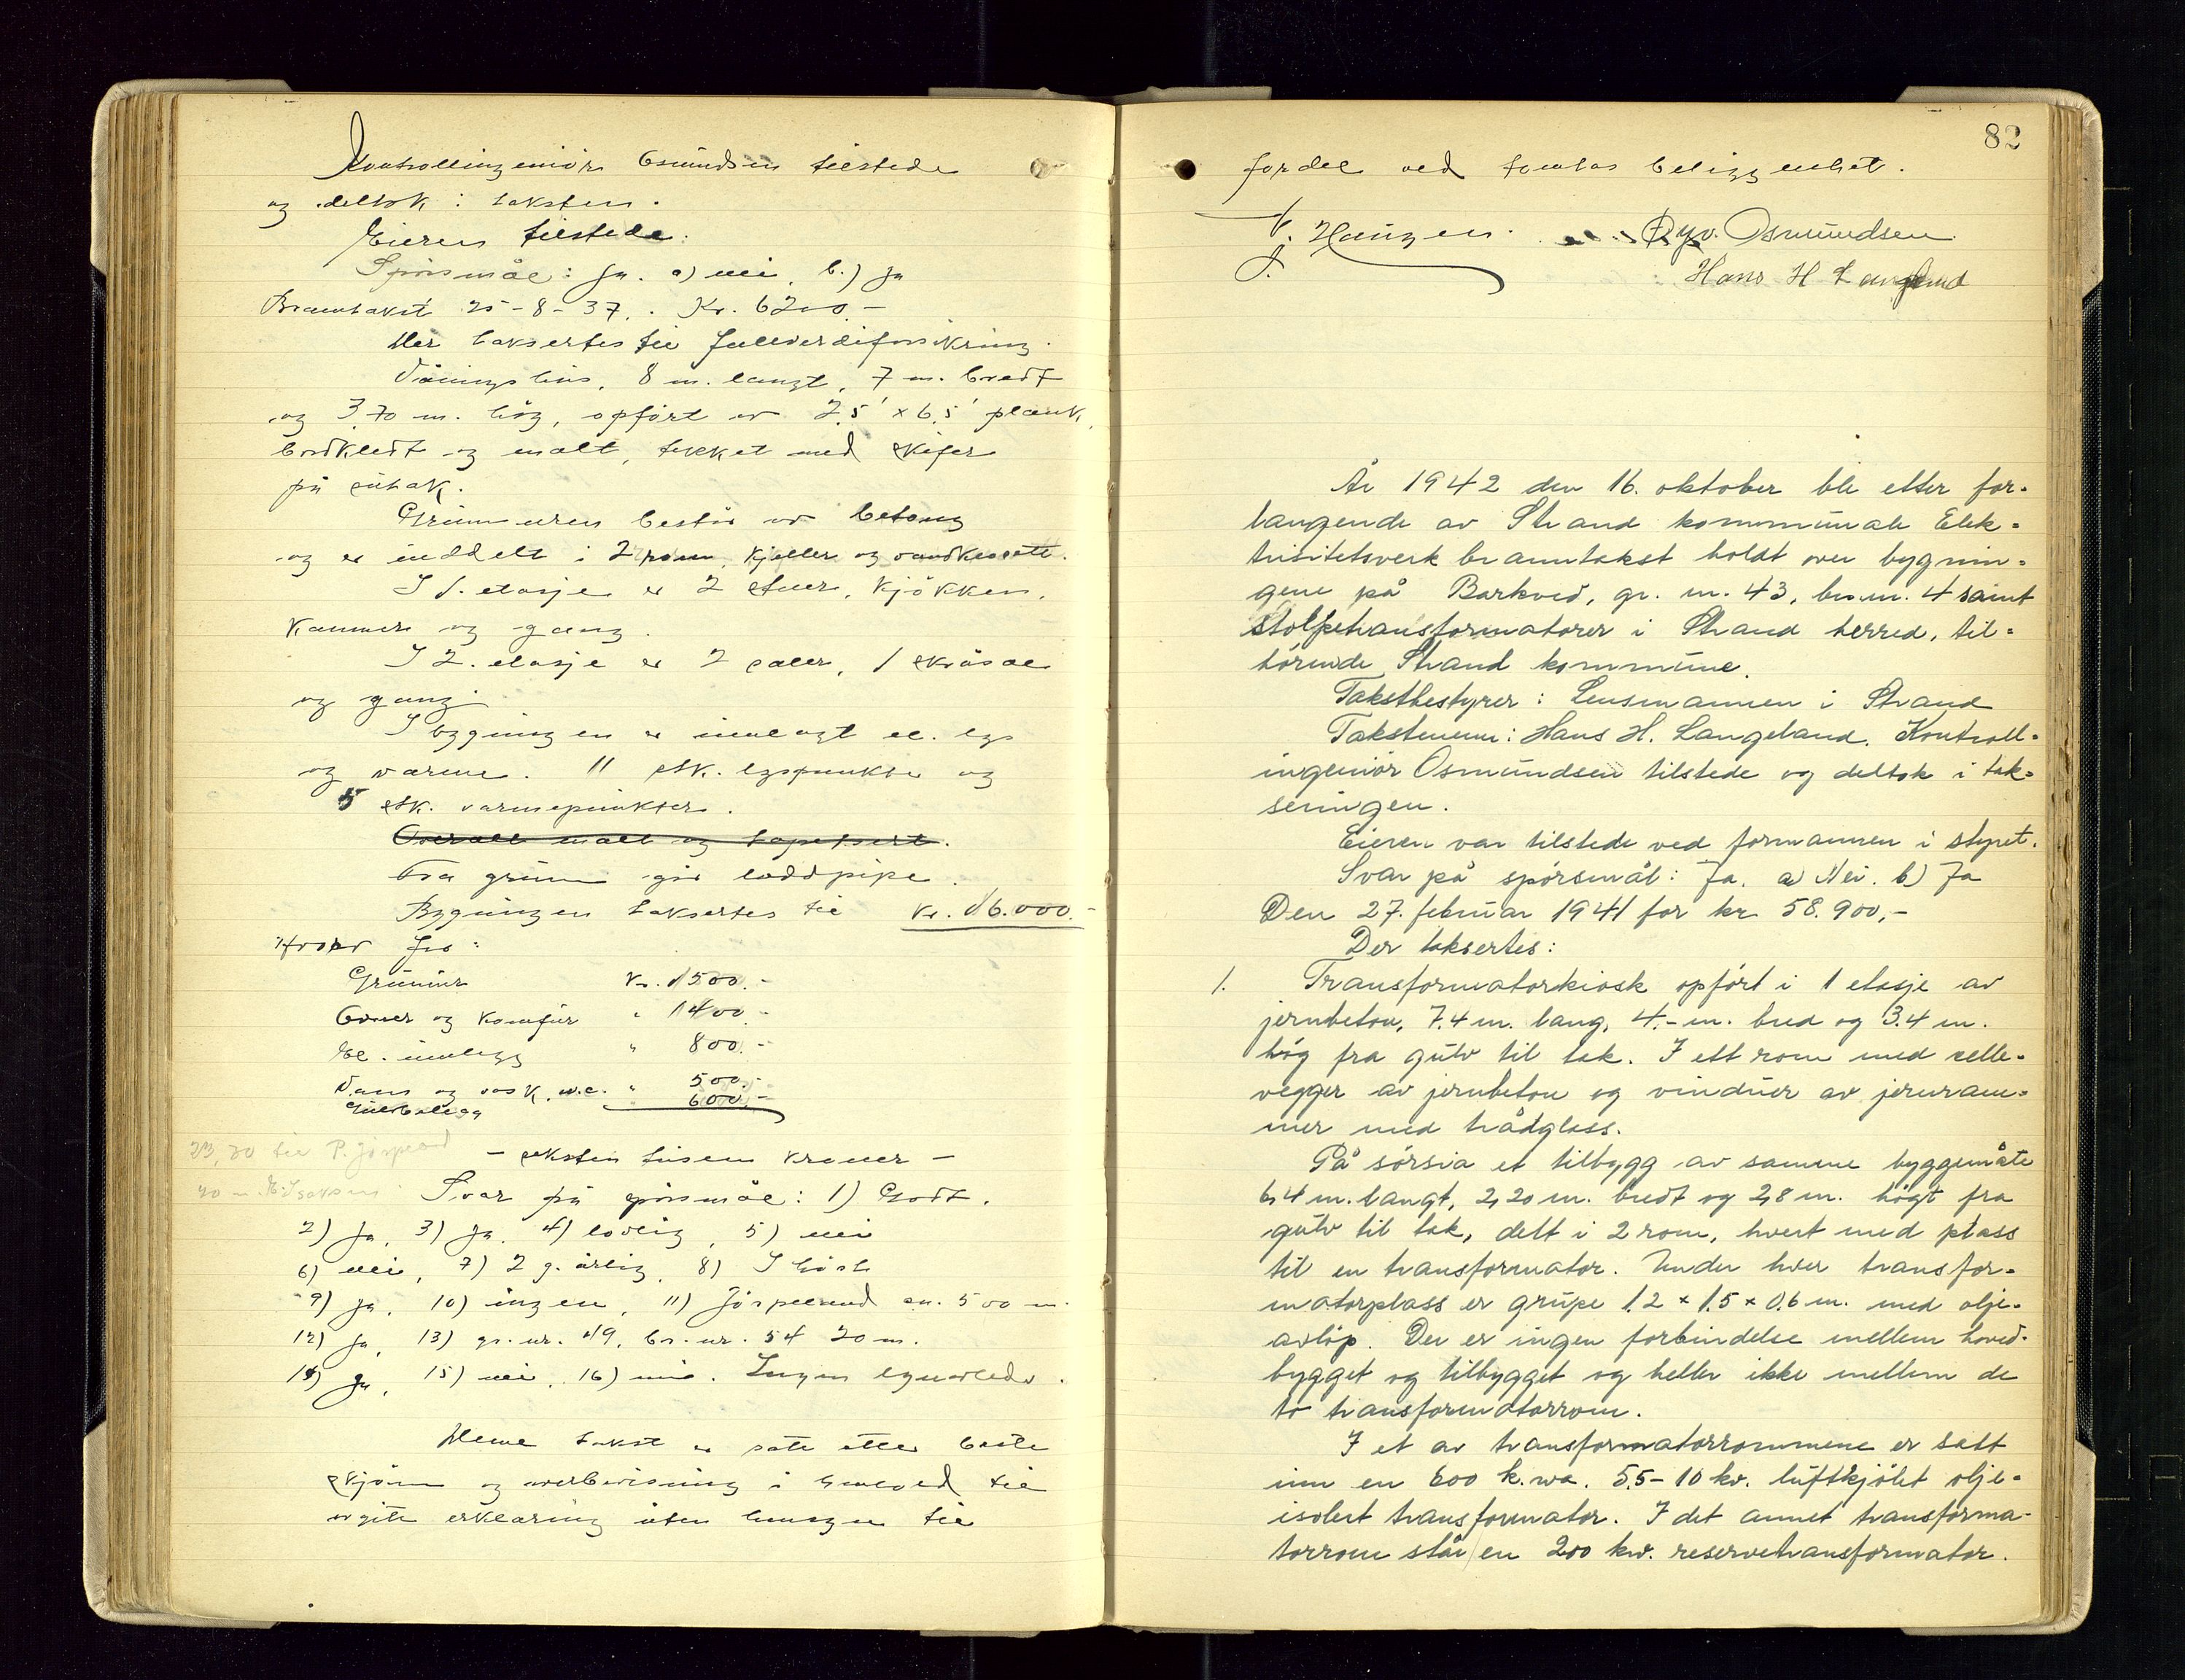 Kontrollingeniör Osmundsen tilstede
og deltok i taksten.
Eieren tilstede.
Spörsmål: Ja. a) nei. b.) ja
Branntakst 25-8-37. Kr. 6200.-
Her taksertes til fullverdiforsikring.
Våningshus, 8 m. langt, 7 m. bredt
og 3.70 m. hög, opfört av 2,5' x 6,5' plank,
bordkledt og malt, tekket med skifer
på sutak.
Grunnmuren består av betong
og er inddelt i 2 rom, kjeller og
I 1. etasje er 2 stuer, kjökken,
kammer og gang.
I 2. etasje er 2 saler, 1 skråsal
og gang.
I bygningen er innlagt el. lys
og varme. 11 stk. lyspunkter og
5 stk. varmepunkter.
Overalt malt og tapetsert.
Fra grunn går loddpipe.
Bygningen taksertes til kr. 16.000.-
Hvorav for:
Grunnmur kr. 1500.-
Ovner og komfur " 1400.-
El. innlegg " 800.-
Vann og vask, w.c. " 500.-
Gulvbelegg 600.-
23,20 til P. Jörpeland - seksten tusen kroner -
20 m. Isaksen Svar på spörsmål: 1) Godt.
2) Ja, 3) Ja, 4) lovlig, 5) nei
6) nei, 7) 2 g. årlig, 8) I höst
9) Ja, 10) ingen, 11) Jörpeland ca. 500 m.
12) Ja, 13) gr. nr. 49, br. nr. 54 20 m.
14) Ja, 15) nei, 16) nei. Ingen lynavleder.
Denne takst er satt etter beste
skjönn og overbevisning i henhold til
avgitt erklæring uten hensyn til
82
fordel ved tomtas beliggenhet.
Öyv. Osmundsen
Hans H Langeland
År 1942 den 16. oktober ble etter for-
langende av Strand kommunale Elek-
trisitetsverk branntakst holdt over bygnin-
gene på Barkved, gr. nr. 43, br. nr. 4 samt
Stolpetransformatorer i Strand herred, til-
hörende Strand kommune.
Takstbestyrer: Lensmannen i Strand
Takstmenn: Hans H. Langeland. Kontroll-
ingeniör Osmundsen tilstede og deltok i tak-
seringen.
Eieren var tilstede ved formannen i styret.
Svar på spörsmål: Ja. a) Nei. b) Ja
Den 27. februar 1941 for kr. 58.900,-
Der taksertes:
1. Transformatorkiosk opfört i 1 etasje av
jernbeton, 7.4 m. lang, 4.- m. bred og 3.4 m.
hög fra gulv til tak. I ett rom med celle-
vegger av jernbeton og vinduer av jernram-
mer med trådglass.
På sörsia et tilbygg av samme byggemåte
6,4 m. langt, 2,20 m. bredt og 2,8 m. högt fra
gulv til tak, delt i 2 rom, hvert med plass
til en transformator. Under hver transfor-
matorplass er grupe 1.2 x 1.5 x 0.6 m. med olje-
avlöp. Der er ingen forbindelse mellem hoved-
bygget og tilbygget og heller ikke mellem de
to transformatorrom.
I et av transformatorrommene er satt
inn en 600 k.wa. 5.5-10 kv. luftkjölet olje-
isolert transformator. I det annet transforma-
torrom står en 200 kw. reservetransformator.